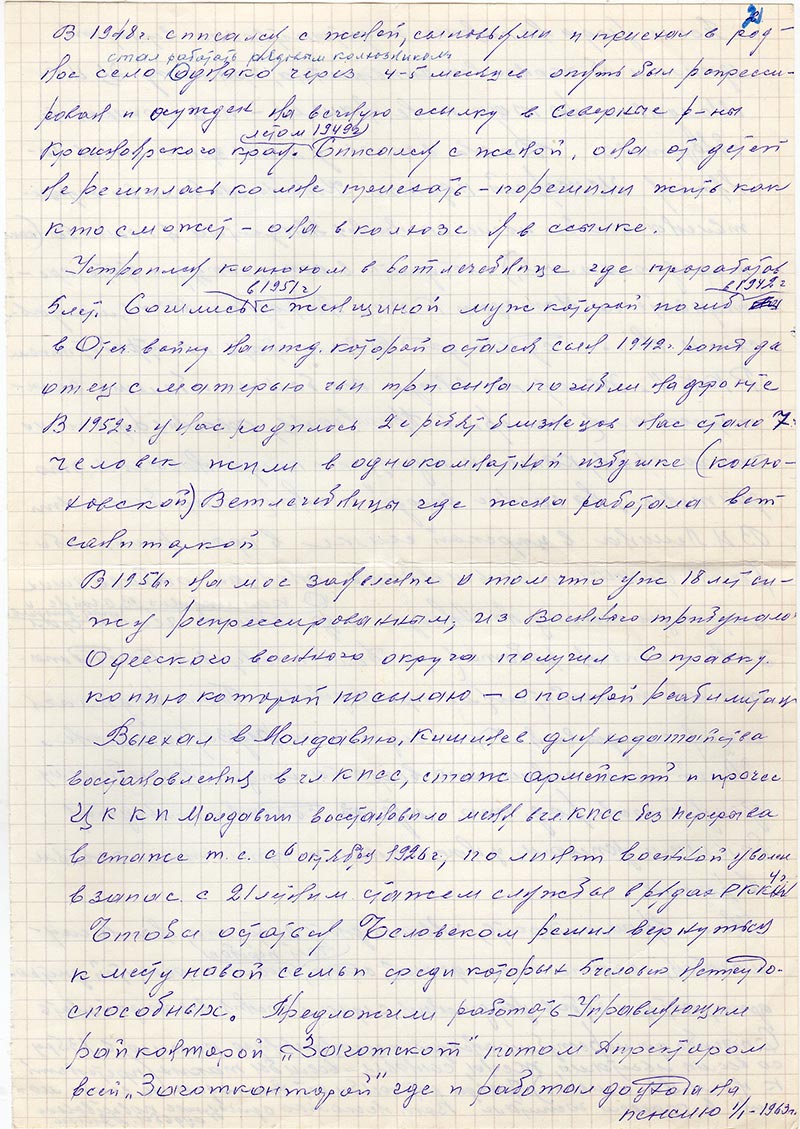 2
В 1948г. списался с женой, сыновьями и приехал в род-
стал работать рядовым колхозником
ное село Однако через 4-5 месяцев опять был репресси-
рован и осужден на вечную ссылку в Северные р-ны
летом 1949г
Красноярского края. Списался с женой, она от детей
не решилась ко мне приехать - порешили жить как
кто сможет - она в колхозе я в ссылке.
Устроился конюхом в ветлечебнице где проработал
в 1951г в 1942г
5 лет. Сошлись с женщиной муж которой погиб
в Отеч войну на ижд. которой остался сын 1942г. рожд да
отец с матерью чьи три сына погибли на фронте
В 1952г у нас родилось 2е ребят близнецов нас стало 7
человек жили в однокомнатной избушке (коню-
ховской) Ветлечебницы где жена работала вет
санитаркой
В 1956г на мое заявление о том что уж 18 лет си-
жу репрессированным, из Военного трибунала
Одесского военного округа получил Справку.
копию которой посылаю - о полной реабилитац
Выехал в Молдавию, Кишинев для ходатайства
востановления в чл КПСС, стаж армейский и прочее
ЦК КП Молдавии восстановило меня в чл КПСС без перерыва
в стаже т.е. с 6 октября 1926г, по линии военной уволен
в запас. с 21 летним стажем службы в рядах РККА
Чтобы остаться Человеком решил вернуться
к месту новой семьи среди которых 5 человек нетрудо-
способных. Предложили работать Управляющим
райконторой "Заготскот" потом Директором
всей "Заготконторой" где и работал до ухода на
пенсию 1/I-1963г.